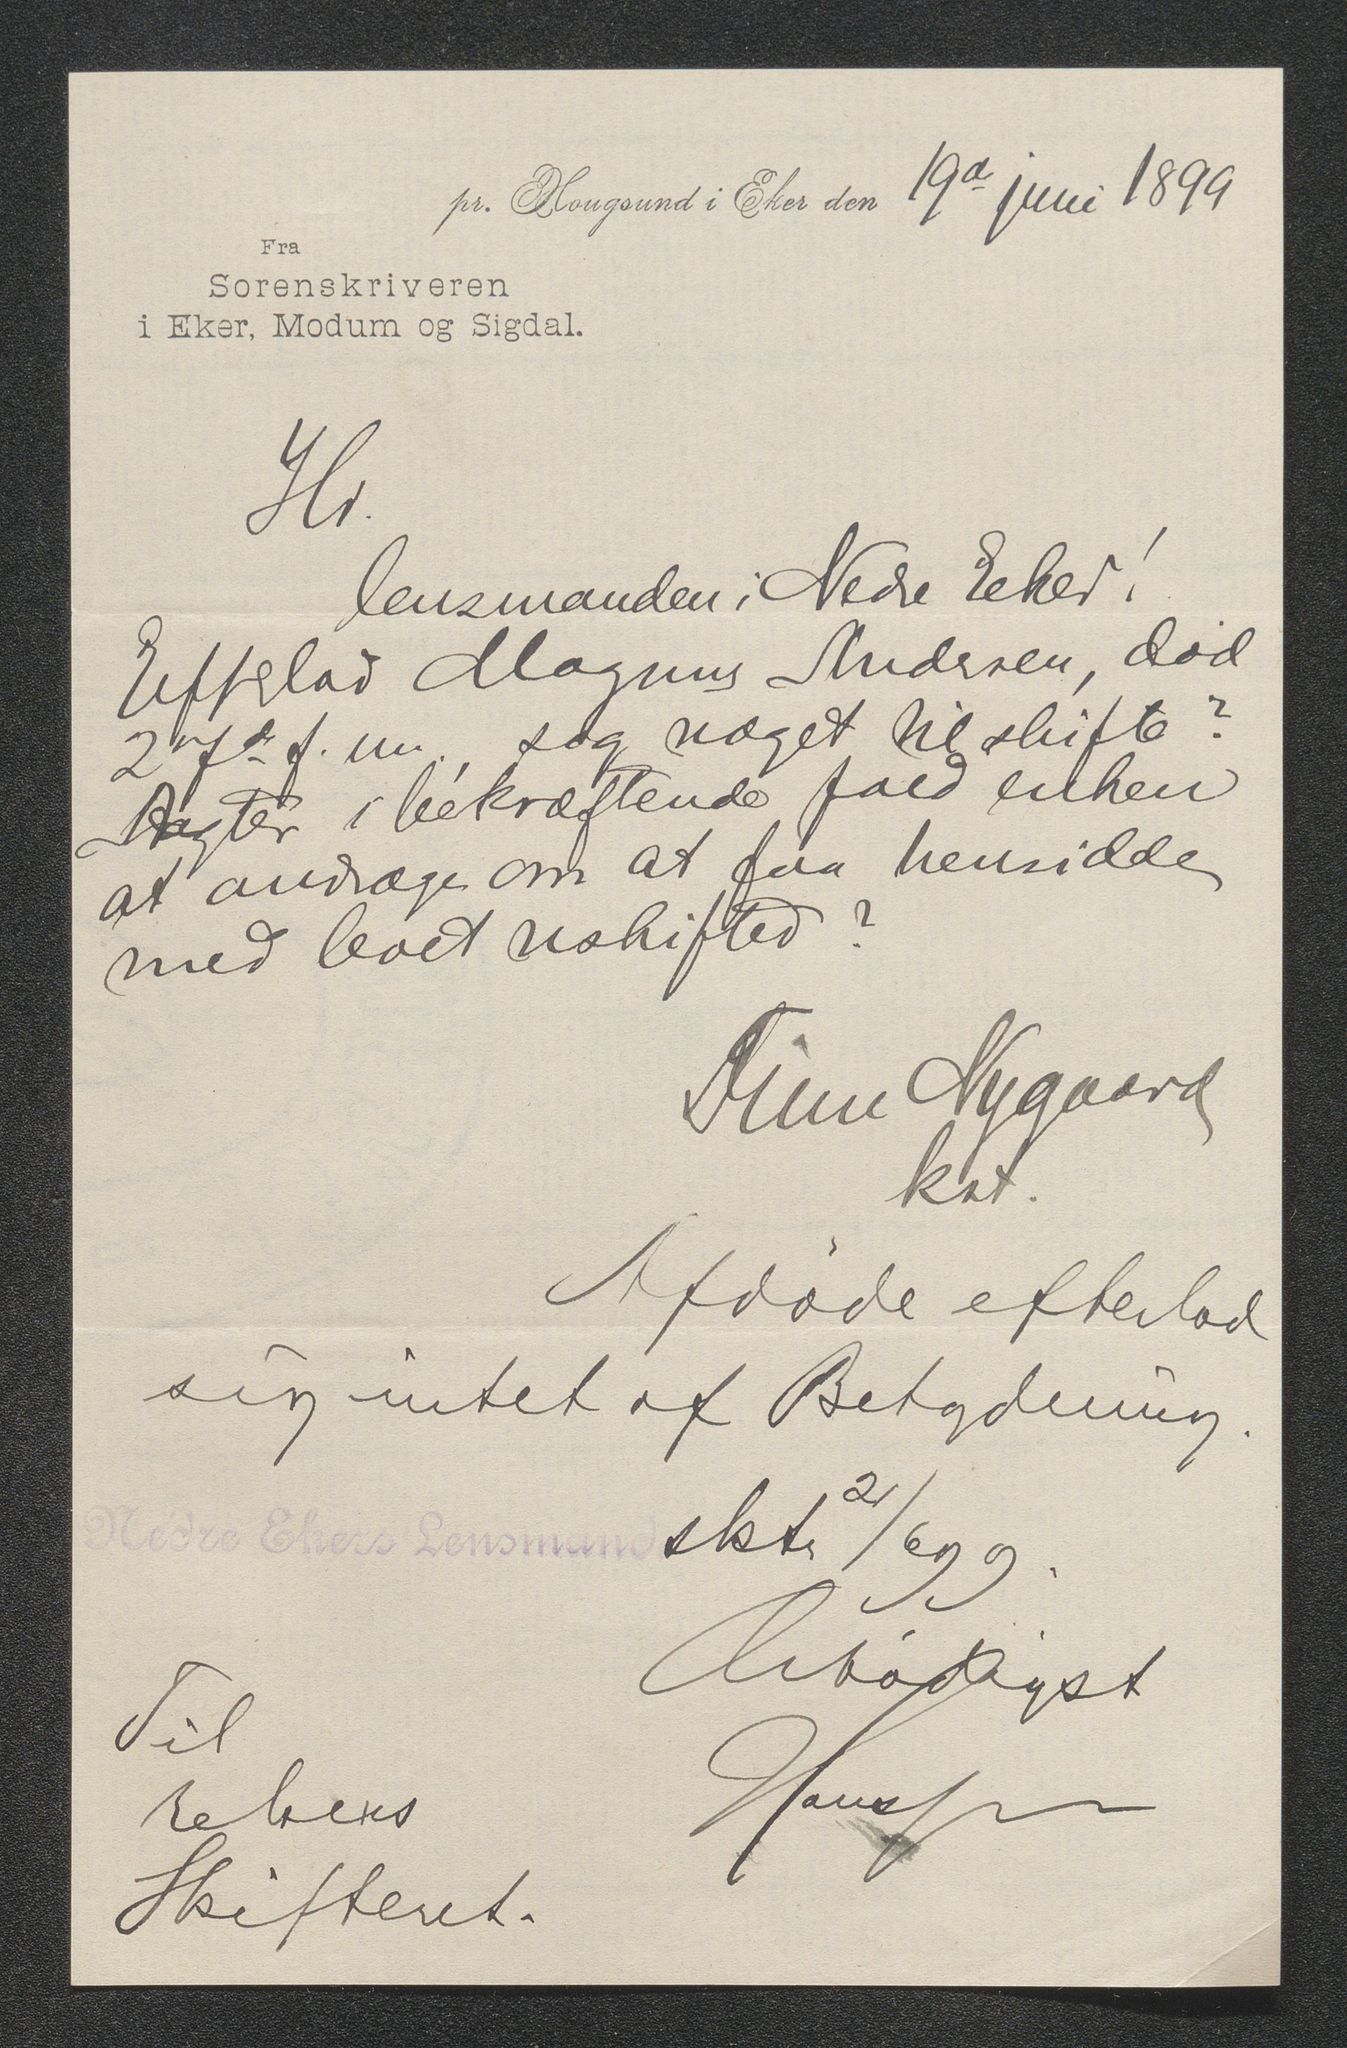 pr. Hougsund i Eker den 19de juni 1899
Fra
Sorenskriveren
i Eker, Modum og Sigdal.
Hr.
lensmanden i Nedre Eeker!
Efterlod Magnus Andersen, död
27de f. m., sig noget til skifte?
Agter i bekræftende fald enken
at andrage om at faa hensidde
med boet uskifted?
Finn Nygaard
kst.
Afdøde efterlod
sig intet af Betydning.
Nedre Ekers Lensmand sktr 21/6 99.
Ærbödigst
Til
Ekers
Skifteret.